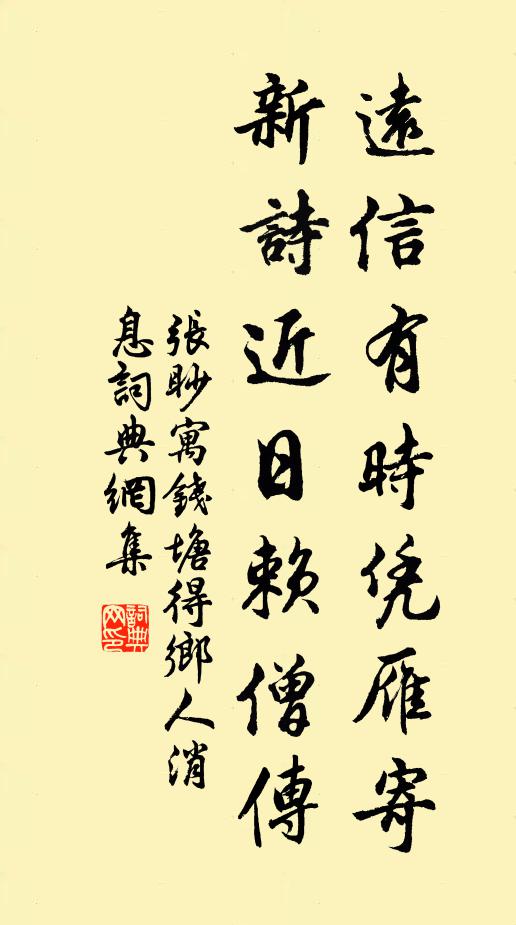 遠信有時凭雁寄
新詩近日賴僧傳
張眇寓錢塘得鄉人消
息詞典網集
詞典
网印